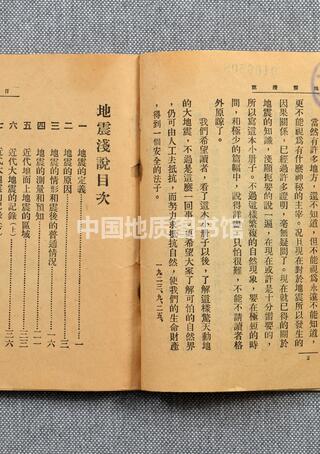 當然有許多地方，還不知道，但不能視爲永遠不知道，
更不能視爲有什麼神秘的主宰。況且現在對於地震所以發生的
因果關係，已經過許多證明，毫無疑問了。現在就已得的關於
地震的知識，淺顯 要的 一遍，在現在或許是十分需要的，
所以寫這本小册子。不過這樣繁複的自然現象，要在極短的時
間，和極少的篇幅中，說得詳 ，只怕很難，不能不請讀者格
外原諒了。
我們希望讀者，看了這本小册子以後，了解這樣驚天動地
的大地震，不過是這麼一回事，更希望大家了解可怕的自然界
，仍可由人工去抵抗，而努力來抵抗自然，使我們的生命財產
，得到一個安全的法子。
一九二三、九、二五、
2
地震淺說目次
一 地震的定義……一
二 地震的原因……三
三 地震的情形和震後的普通情況……六
四 地震的測量和預知……一三
五 近代地面上地震的區域……二一
六 近代大地震的記錄（上）……二六
七
中国地质图书馆